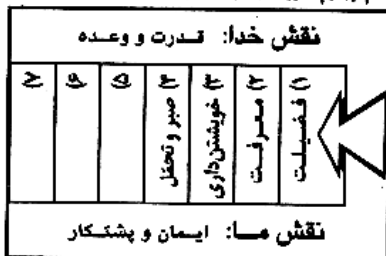 نقش خدا: قدرت و وعده
۱) فضیلت
۲) معرفت
۳) خویشتن‌داری
۴) صبر و تحمّل
۵)
۶)
۷)
نقش ما: ایمان و پشتکار